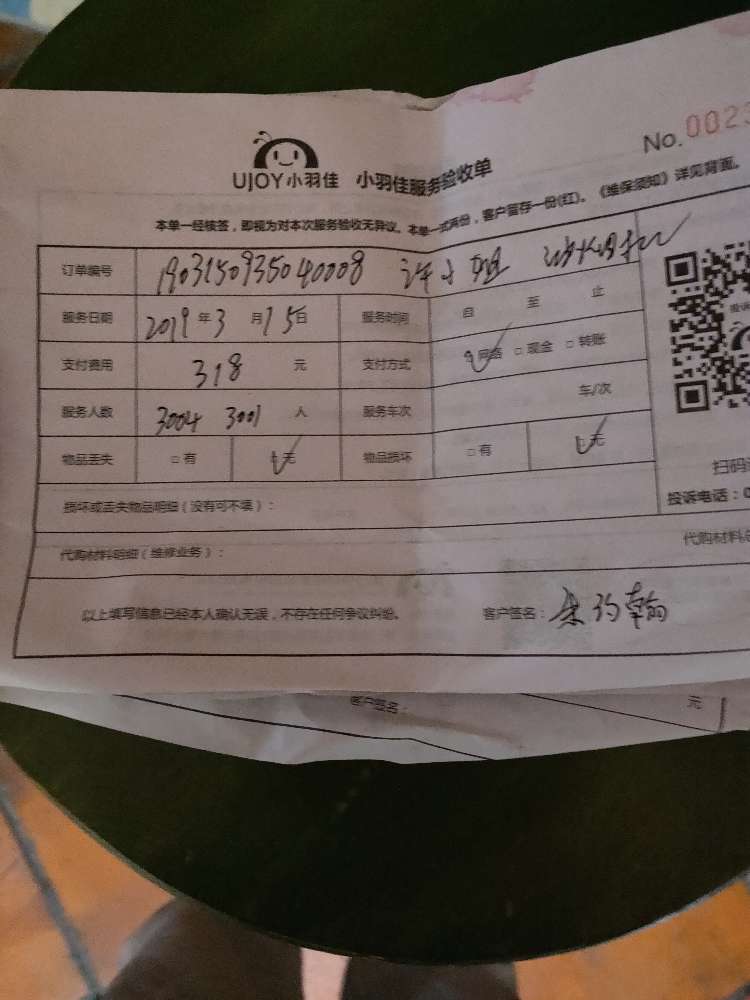 No. 0023
UJOY小羽佳 小羽佳服务验收单
本单一经核签，即视为对本次服务验收无异议。本单一式两份，客户留存一份(红)。《维保须知》详见背面。
订单编号 1903150935040008 许小姐
服务日期 2019年3月15日 服务时间 自 至 止
支付费用 318 元 支付方式 网络 □现金 □转账
服务人数 3004 3001 人 服务车次 车/次
物品丢失 □有 □无 物品损坏 □有 □无
扫码
投诉电话：0
损坏或丢失物品明细（没有可不填）：
代购材料明细（维修业务）： 代购材料
以上填写信息已经本人确认无误，不存在任何争议纠纷。 客户签名：朱约翰
客户签名： 元